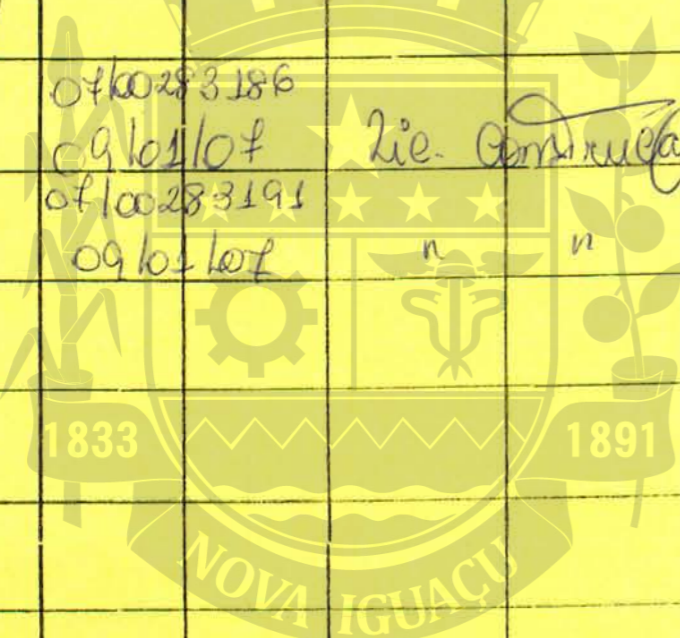 07/00283186
09/01/07 Lic. Construçã
07/00283191
09/01/07 " "
1833 1891
NOVA IGUAÇU